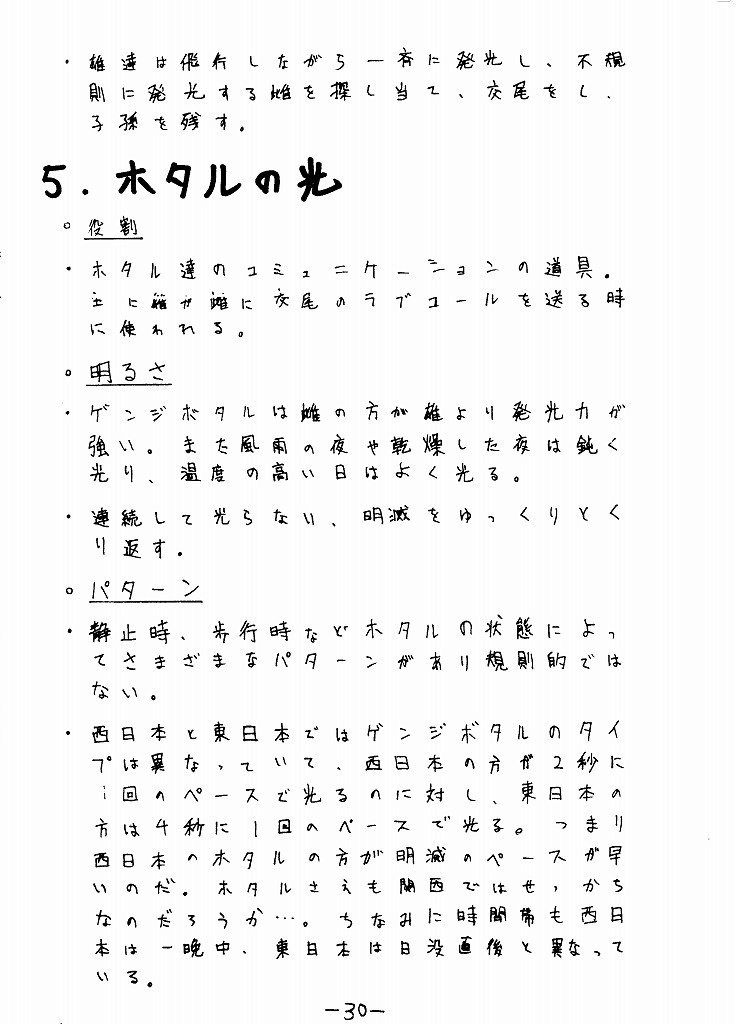 ・雄達は飛行しながら一斉に発光し、不規
則に発光する雌を探し当て、交尾をし、
子孫を残す。
5. ホタルの光
○ 役割
・ホタル達のコミュニケーションの道具。
主に雄が雌に交尾のラブコールを送る時
に使われる。
○ 明るさ
・ゲンジボタルは雌の方が雄より発光力が
強い。また風雨の夜や乾燥した夜は鈍く
光り、温度の高い日はよく光る。
・連続して光らない、明滅をゆっくりとく
り返す。
○ パターン
・静止時、歩行時などホタルの状態によっ
てさまざまなパターンがあり規則的では
ない。
・西日本と東日本ではゲンジボタルのタイ
プは異なっていて、西日本の方が2秒に
1回のペースで光るのに対し、東日本の
方は4秒に1回のペースで光る。つまり
西日本のホタルの方が明滅のペースが早
いのだ。ホタルさえも関西ではせっかち
なのだろうか…。ちなみに時間帯も西日
本は一晩中、東日本は日没直後と異なって
いる。
-30-